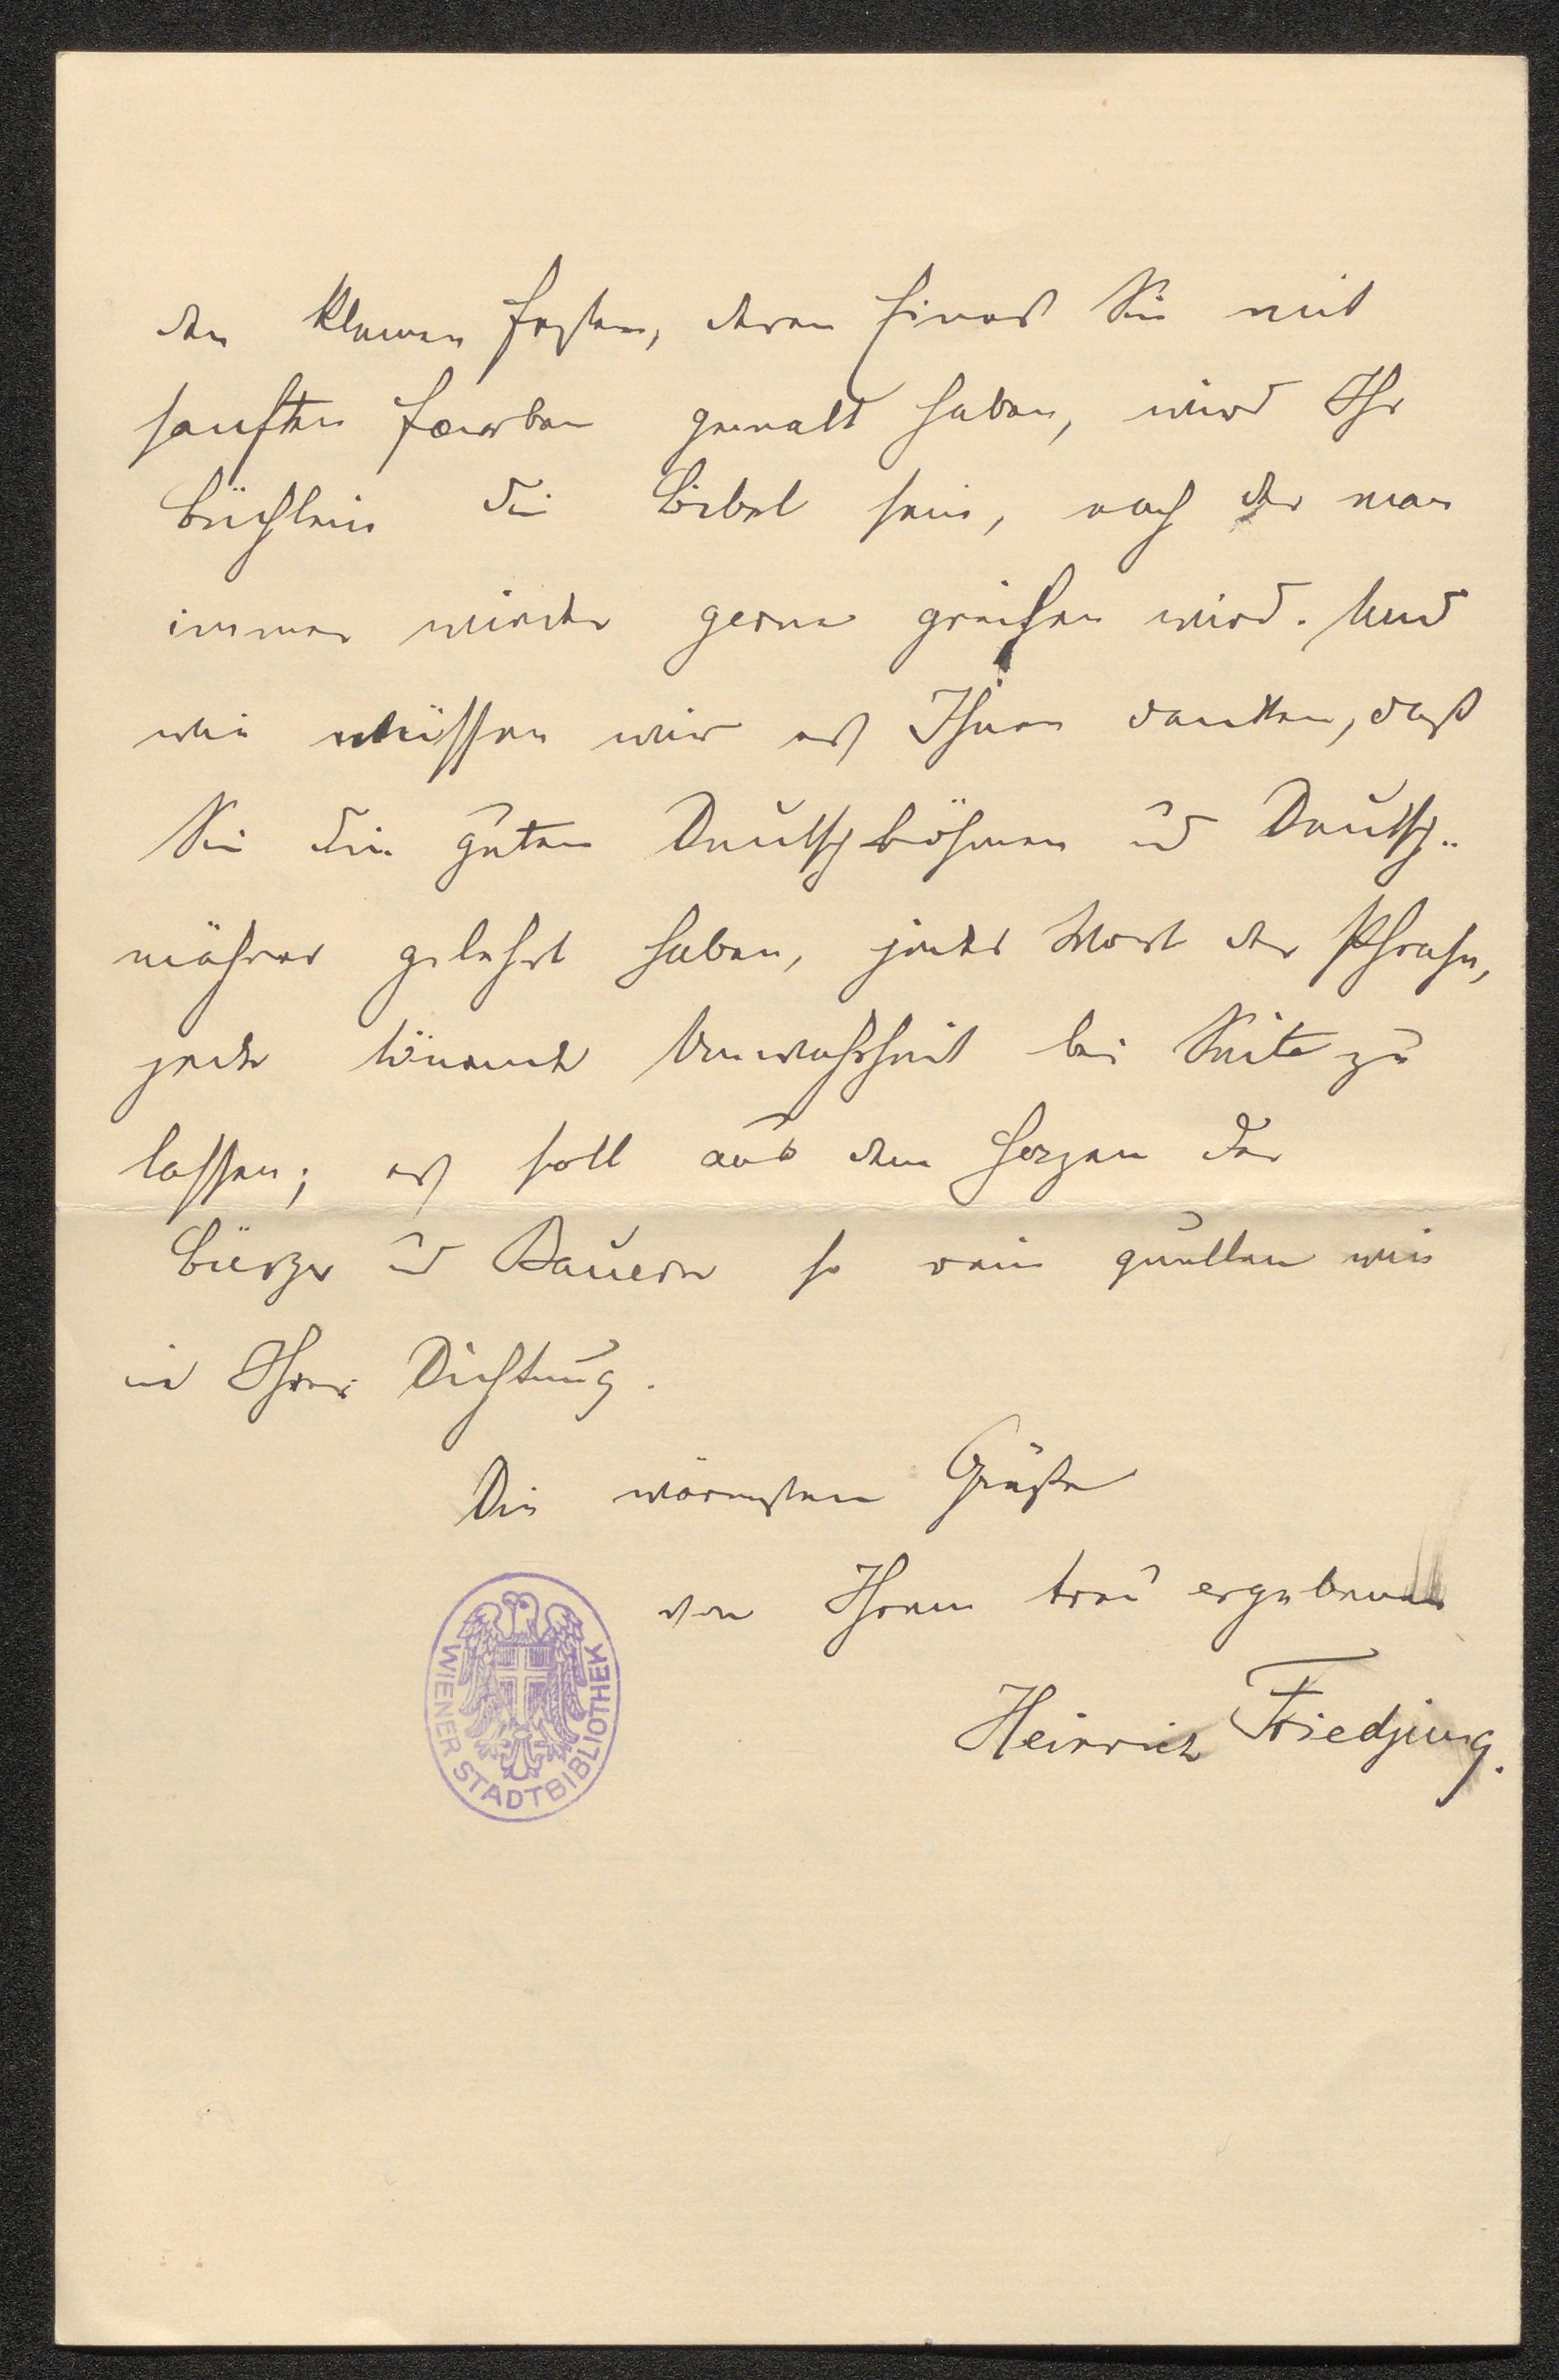 den kleinen Festen, deren Eines Sie mit
sanften Farben gemalt haben, wird Ihr
Büchlein die Bibel sein, nach der man
immer wieder gerne greifen wird. Und
wie müssen wir es Ihnen danken, daß
Sie die guten Deutschböhmen und Deutsch-
mährer gelehrt haben, jedes Wort der Phrase,
jede tönende Unwahrheit bei Seite zu
lassen; es soll aus dem Herzen der
Bürger und Bauern so rein quellen wie
in Ihrer Dichtung.
Die wärmsten Grüße
von Ihrem treu ergebenen
Heinrich Friedjung.
WIENER STADTBIBLIOTHEK